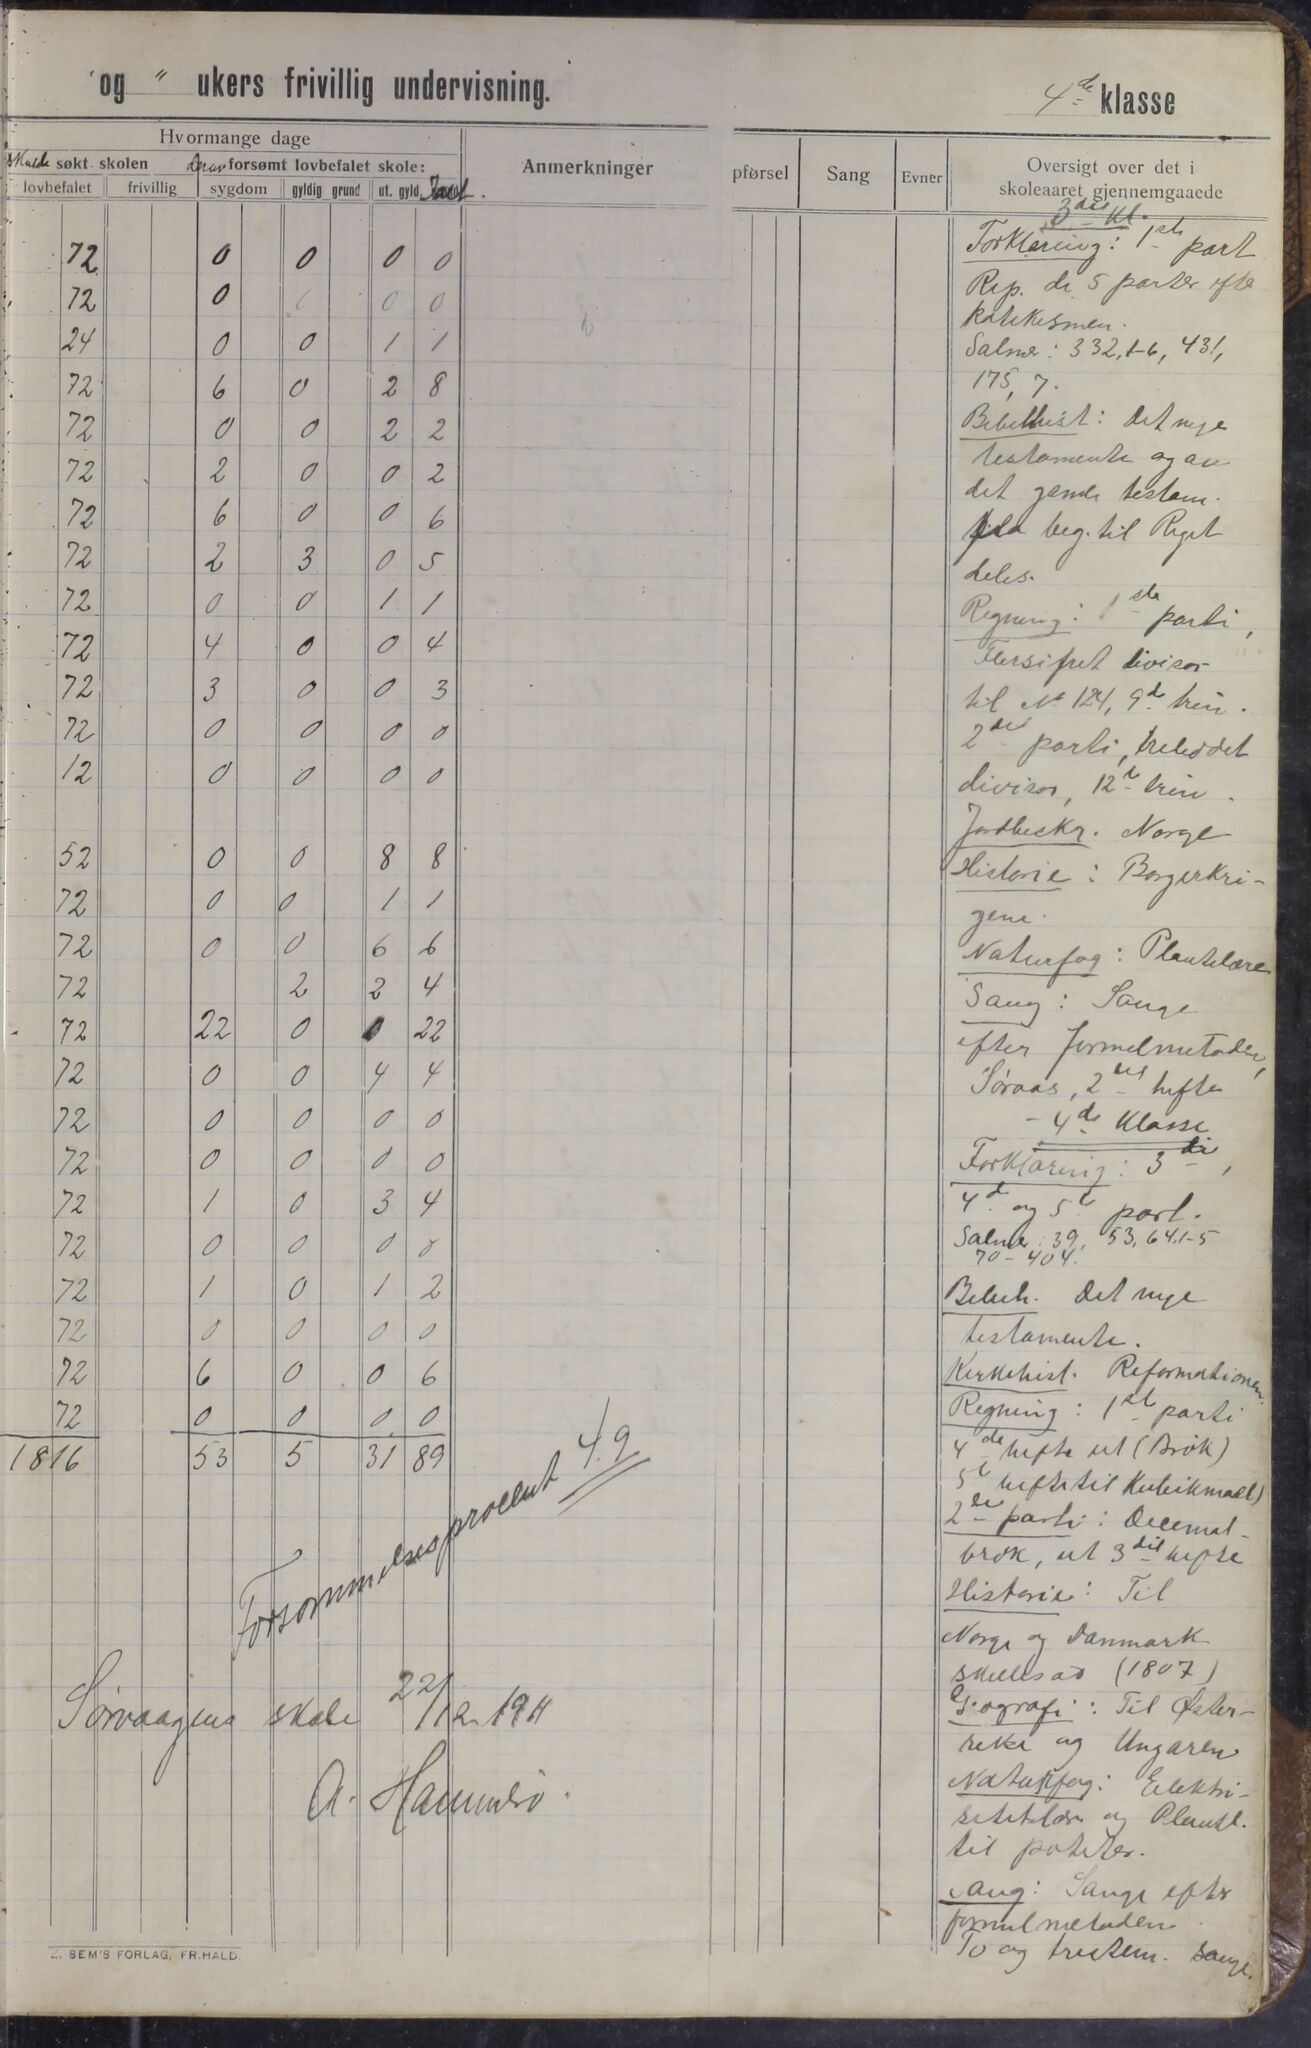 og " ukers frivillig undervisning.
4de klasse
Hvormange dage
Skulde søkt skolen
Derav forsømt lovbefalet skole:
Anmerkninger
pførsel
Sang
Evner
Oversigt over det i
skoleaaret gjennemgaaede
lovbefalet
frivillig
sygdom
gyldig grund
ut. gyld.
72 0 0 0 0
72 0 0 0 0
24 0 0 1 1
72 6 0 2 8
72 0 0 2 2
72 2 0 0 2
72 6 0 0 6
72 2 3 0 5
72 0 0 1 1
72 4 0 0 4
72 3 0 0 3
72 0 0 0 0
12 0 0 0 0
52 0 0 8 8
72 0 0 1 1
72 0 0 6 6
72 2 2 4
72 22 0 0 22
72 0 0 4 4
72 0 0 0 0
72 0 0 0 0
72 1 0 3 4
72 0 0 0 0
72 1 0 1 2
72 0 0 0 0
72 6 0 0 6
72 0 0 0 0
1816 53 5 31 89
Forsømmelsesprocent 4.9
Sørvaagens skole 22/12 1911
A. Hammerø.
E. SEM'S FORLAG, FR.HALD
3die Kl.
Forklaring: 1ste part
Rep. de 5 parter efter
katekismen.
Salmer: 332, 1-6, 431,
175, 7.
Bibelhist: Det nye
testamente og av
det gamle testam.
fra beg. til Riget
deles.
Regning: 1ste parti,
Flersifret divisor
til No 124, 9de trin.
2det parti, treleddet
divisor, 12te trin.
Jordbeskr. Norge
Historie: Borgerkri-
gene.
Naturfag: Plantelære
Sang: Sange
efter formelmetoden,
Søraas, 2det hefte
- 4de Klasse
Forklaring: 3die,
4de og 5te part.
Salmer: 39, 53, 64, 1-5
70 - 404.
Bibelh. Det nye
testamente.
Kirkehist. Reformationen.
Regning: 1ste parti
4de hefte ut (Brøk)
5te hefte til Kubikmaal)
2det parti: Decimal-
brøk, ut 3die hefte
Historie: Til
Norge og Danmark
skilles ad (1807)
Geografi: Til Øster-
rike og Ungaren
Naturfag: Elektri-
sitetslære og Plantel.
til poteter.
Sang: Sange efter
formelmetoden
To og trestem. sange.